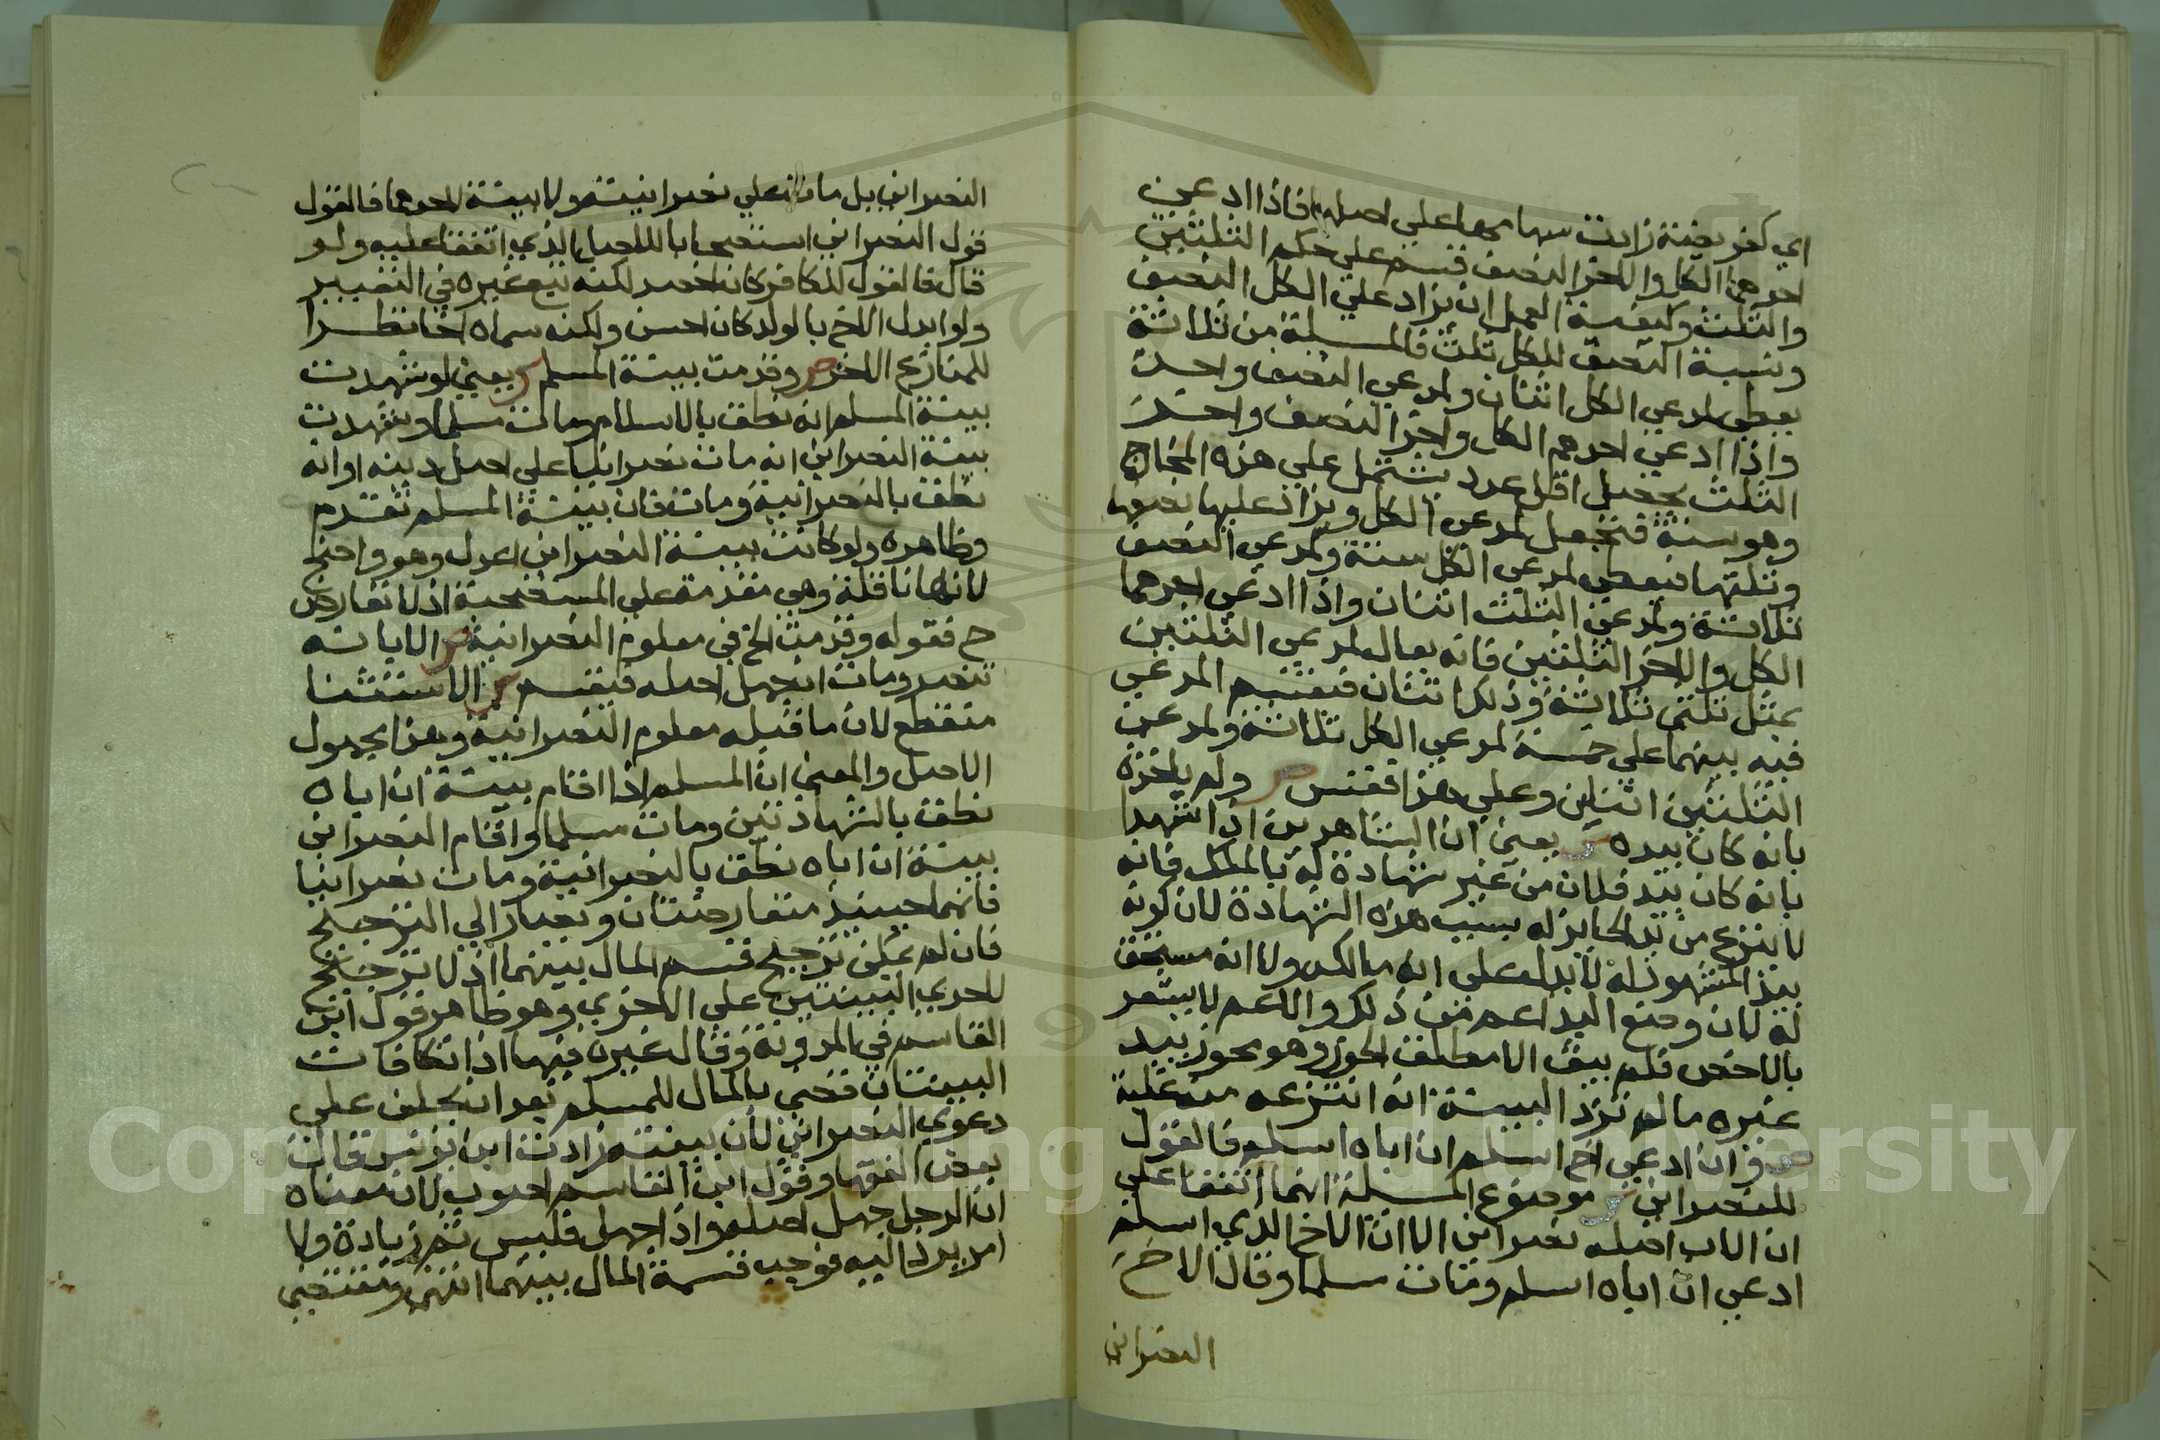 اي كفريضة زادت سهامها على اصلها فاذا ادعى
احدهما الكل والاخر النصف قسم على حكم الثلثين
والثلث وكيفية العمل ان يزاد على الكل النصف
ونسبة النصف للكل ثلث فالمسيلة من ثلاثة
يعطى لمدعي الكل اثنان ولمدعي النصف واحد
واذا ادعى احدهم الكل واخر النصف واخر
الثلث يحصل اقل عدد يشتمل على هذه المخارج
وهو ستة فتجعل لمدعي الكل ويزاد عليها نصفها
وثلثها فيعطى لمدعي الكل ستة ولمدعي النصف
ثلاثة ولمدعي الثلث اثنان واذا ادعى احدهما
الكل والاخر الثلثين فانه يعال لمدعي الثلثين
بمثل ثلثي ثلاثة وذلك اثنان فيقتسم المدعي
فيه بينهما على خمسة لمدعي الكل ثلاثة ولمدعي
الثلثين اثنان وعلى هذا فقس ص ولم ياخذه
بانه كان بيده ش يعني ان الشاهدين اذا شهدا
بانه كان بيد فلان من غير شهادة له بالملك فانه
لا ينزع من يد الحايز له بسبب هذه الشهادة لان كونه
بيد المشهود له لا يدل على انه مالك ولا انه مستحق
له لان وضع اليد اعم من ذلك والاعم لا يشعر
بالاخص فلم يبق الا مطلق الحوز وهو محوز بيد
غيره ما لم تزد البينة انه انتزعه منه غلبة
ص وان ادعى اخ اسلم ان اباه اسلم فالقول
للنصراني ش موضوع المسيلة انهما اتفقا على
ان الاب اصله نصراني الا ان الاخ الذي اسلم
ادعى ان اباه اسلم ومات مسلما وقال الاخ
النصراني
النصراني بل مات على نصرانيته ولا بينة لاحدهما فالقول
قول النصراني استصحابا للحال الذي اتفقا عليه ولو
قال فالقول للكافر كان اخصر لكنه تبع غيره في التعبير
ولو ابدل الاخ بالولد كان احسن ولكنه سماه اخا نظرا
للمنازع الاخر ص وقدمت بينة المسلم ش يعني لو شهدت
بينة المسلم انه نطق بالاسلام ومات مسلما وشهدت
بينة النصراني انه مات نصرانيا على اصل دينه او انه
نطق بالنصرانية ومات فان بينة المسلم تقدم
وظاهره ولو كانت بينة النصراني اعدل وهو واضح
لانها ناقلة وهي مقدمة على المستصحبة اذ لا تعارض
ح فقوله وقدمت الخ في معلوم النصرانية ص الا بانه
تنصر ومات ان جهل اصله فيقسم ش الاستثنا
منقطع لان ما قبله معلوم النصرانية وهذا مجهول
الاصل والمعنى ان المسلم اذا اقام بينة ان اباه
نطق بالشهادتين ومات مسلما واقام النصراني
بينة ان اباه نطق بالنصرانية ومات نصرانيا
فانهما حينيذ متعارضتان ويصار الى الترجيح
فان لم يمكن ترجيح قسم المال بينهما اذ لا ترجيح
لاحدي البينتين على الاخري وهو ظاهر قول ابن
القاسم في المدونة وقال غيره فيها اذا تكافات
البينتان قضي بالمال للمسلم بعد ان يحلف على
دعوي النصراني لان بينته زادت ابن يونس قالت
بعض الفقها وقول ابن القاسم اصوب لان معناه
ان الرجل جهل اصله واذا جهل فليس ثم زيادة ولا
امر يرد اليه فوجب قسمة المال بينهما انتهى ومقتضى
Copyright © King Saud University